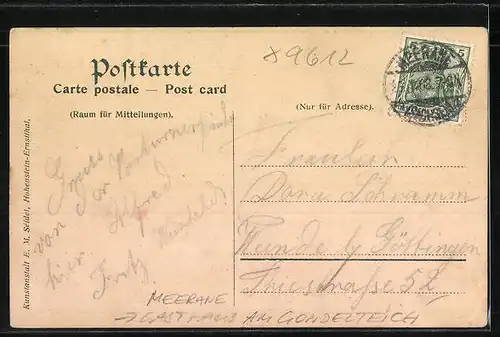 ×9612
Postkarte
Carte postale — Post card
(Raum für Mitteilungen).
(Nur für Adresse).
5
Gruss
von der Vorturnerstunde
hier. Alfred
Fritz
Fräulein
Dora Schramm
Weende b/ Göttingen
Friesstraße 52
MEERANE
→ GASTHAUS AM GONDELTEICH
Kunstanstalt E. M. Seidel, Hohenstein-Ernstthal.